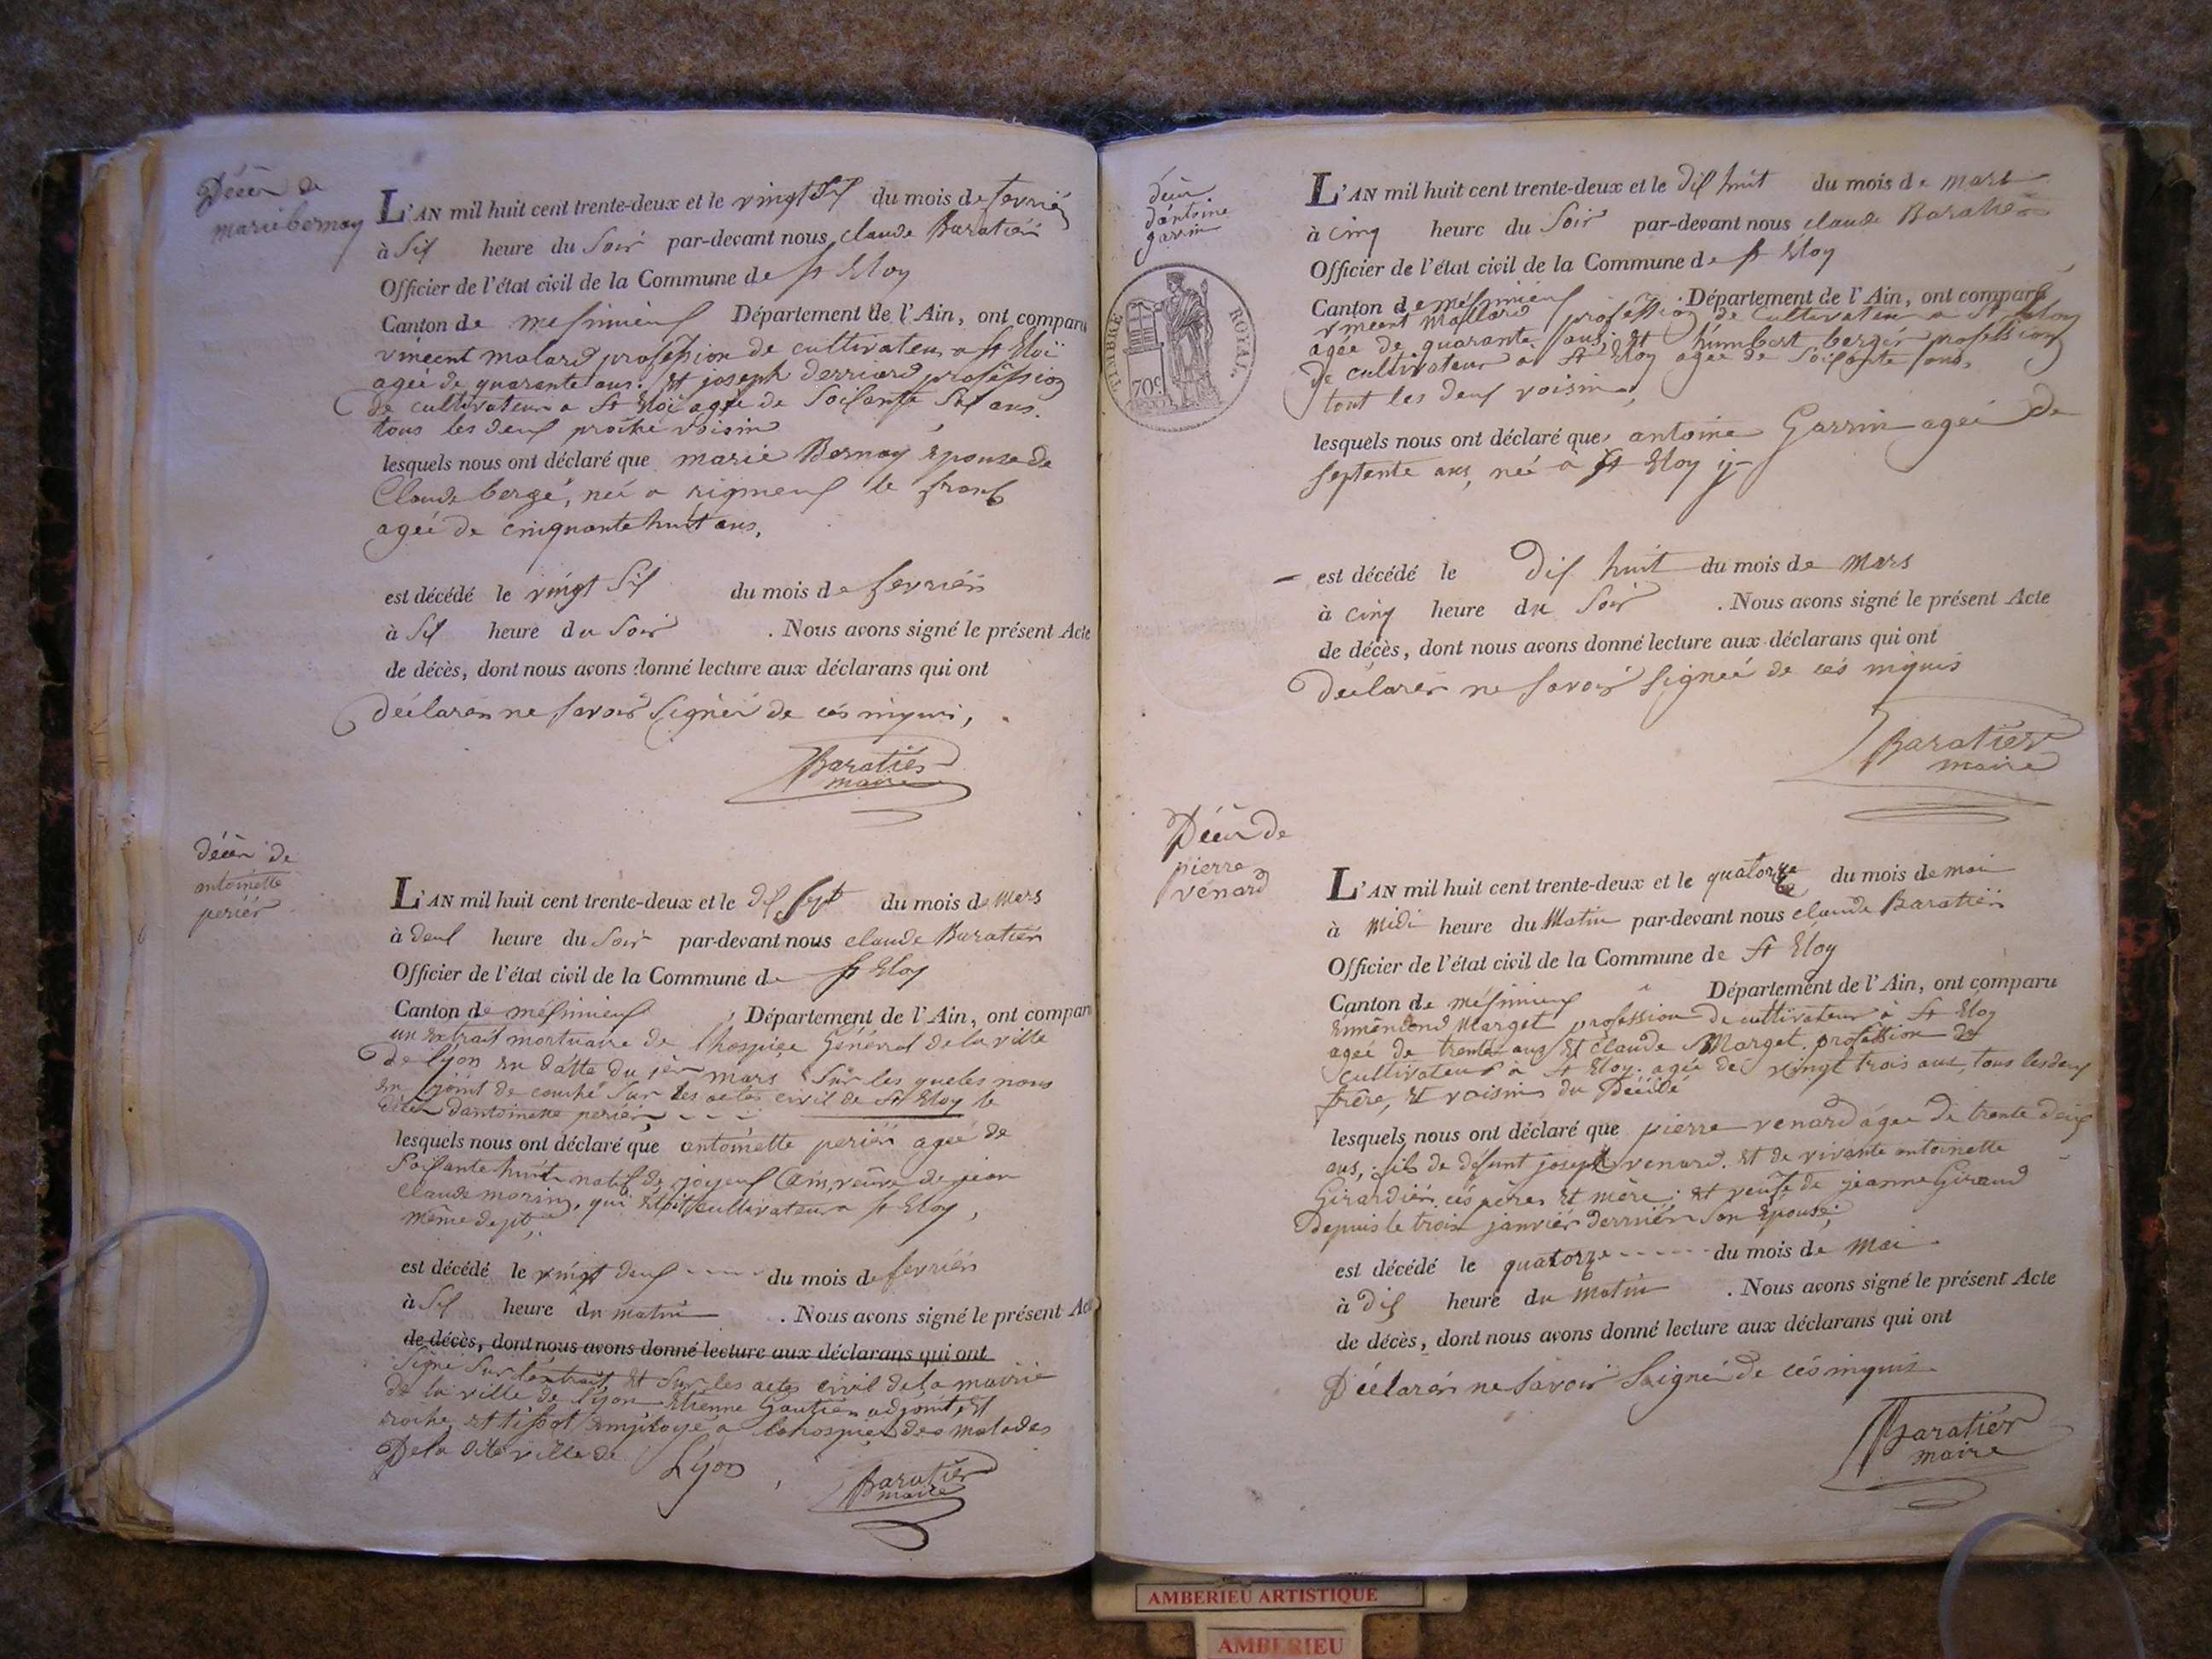 Décèr de
marie bernay
L'AN mil huit cent trente-deux et le vingt Six du mois de fevrier
à Six heure du Soir par-devant nous claude Baratiér
Officier de l'état civil de la Commune de St Eloy
Canton de mesimieux Département de l'Ain, ont comparu
vincent malard profession de cultivateur a St Eloi
agée de quarante ans. Et joseph derriard profession
de cultivateur a St Eloi agée de Soixante Six ans.
tous les deux proche voisin
lesquels nous ont déclaré que marie Bernay Epouse de
Claude bergé, neé a rigneux le franc
ageé de cinquante huit ans,
est décédé le vingt Six du mois de fevriér
à Six heure du Soir . Nous avons signé le présent Acte
de décès, dont nous avons donné lecture aux déclarans qui ont
déclarer ne savoir Signér de cés inquis,
Baratiér
maire
décèr de
antoinette
periér
L'AN mil huit cent trente-deux et le dix Sept du mois de Mars
à deux heure du Soir par-devant nous claude Baratiér
Officier de l'état civil de la Commune de St Eloy
Canton de mésimieux , Département de l'Ain, ont comparu
un Extrait mortuaire de lhospice Général de la ville
de lÿon En datte du 1er mars Sur les queles nous
En joint de couché Sur les actes civil de St Eloy le
décér dantoinette periér
lesquels nous ont déclaré que antoinette periér ageé de
Soixante huit natif de joyeux (ain, veuve de jean
claude morin, qui Etoit cultivateur a St Eloy,
même dept
est décédé le vingt deux du mois de fevriér
à Six heure du matin . Nous avons signé le présent Acte
de décès, dont nous avons donné lecture aux déclarans qui ont
Signé Sur l'extrait Et Sur les actes civil de la mairie
de la ville de lÿon Etienne Gautier adjoint, Et
roche Et tissot Employé a lahospice des malades
De la dite ville de Lÿon,
Baratier
maire
décèr
d'antoine
garrin
TIMBRE ROYAL.
70c.
L'AN mil huit cent trente-deux et le dix huit du mois de mars
à cinq heure du Soir par-devant nous claude Baratier
Officier de l'état civil de la Commune de St Eloy
Canton de mésimieux . Département de l'Ain, ont comparu
vincent Mallard profession de cultivateur a St Eloy
agée de quarante ans, Et humbert bergér profession
de cultivateur a St Eloy agée de Soixante ans,
tout les deux voisin,
lesquels nous ont déclaré que, antoine Garrin ageé de
Septante ans, neé a St Eloy
est décédé le Dix huit du mois de Mars
à cinq heure du Soir . Nous avons signé le présent Acte
de décès, dont nous avons donné lecture aux déclarans qui ont
déclarer ne savoir signeé de cés inquis
Baratiér
maire
Décér de
pierre
vénard
L'AN mil huit cent trente-deux et le quatorze du mois de mai
à Midi heure du Matin par-devant nous claude Baratiér
Officier de l'état civil de la Commune de St Eloy
Canton de mésimieux Département de l'Ain, ont comparu
Ennémond Marget profession de cultivateur à St Eloy
ageé de trente ans Et Claude Marget profession de
cultivateur a St Eloy. agée de vingt trois ans, tous les deux
frère, Et voisins du Décédé
lesquels nous ont déclaré que pierre venard ágée de trente deux
ans, fils de défunt joseph venard. Et de vivante antoinette
Girardiér, cés péres Et mère; Et veuf de jeanne Giraud
Depuis le trois janviér derniér Son Epouse;
est décédé le quatorze du mois de Mai
à dix heure du Matin . Nous avons signé le présent Acte
de décès, dont nous avons donné lecture aux déclarans qui ont
Déclarér ne savoir Saigné de cés inquis
Baratiér
maire
AMBERIEU ARTISTIQUE
AMBERIEU